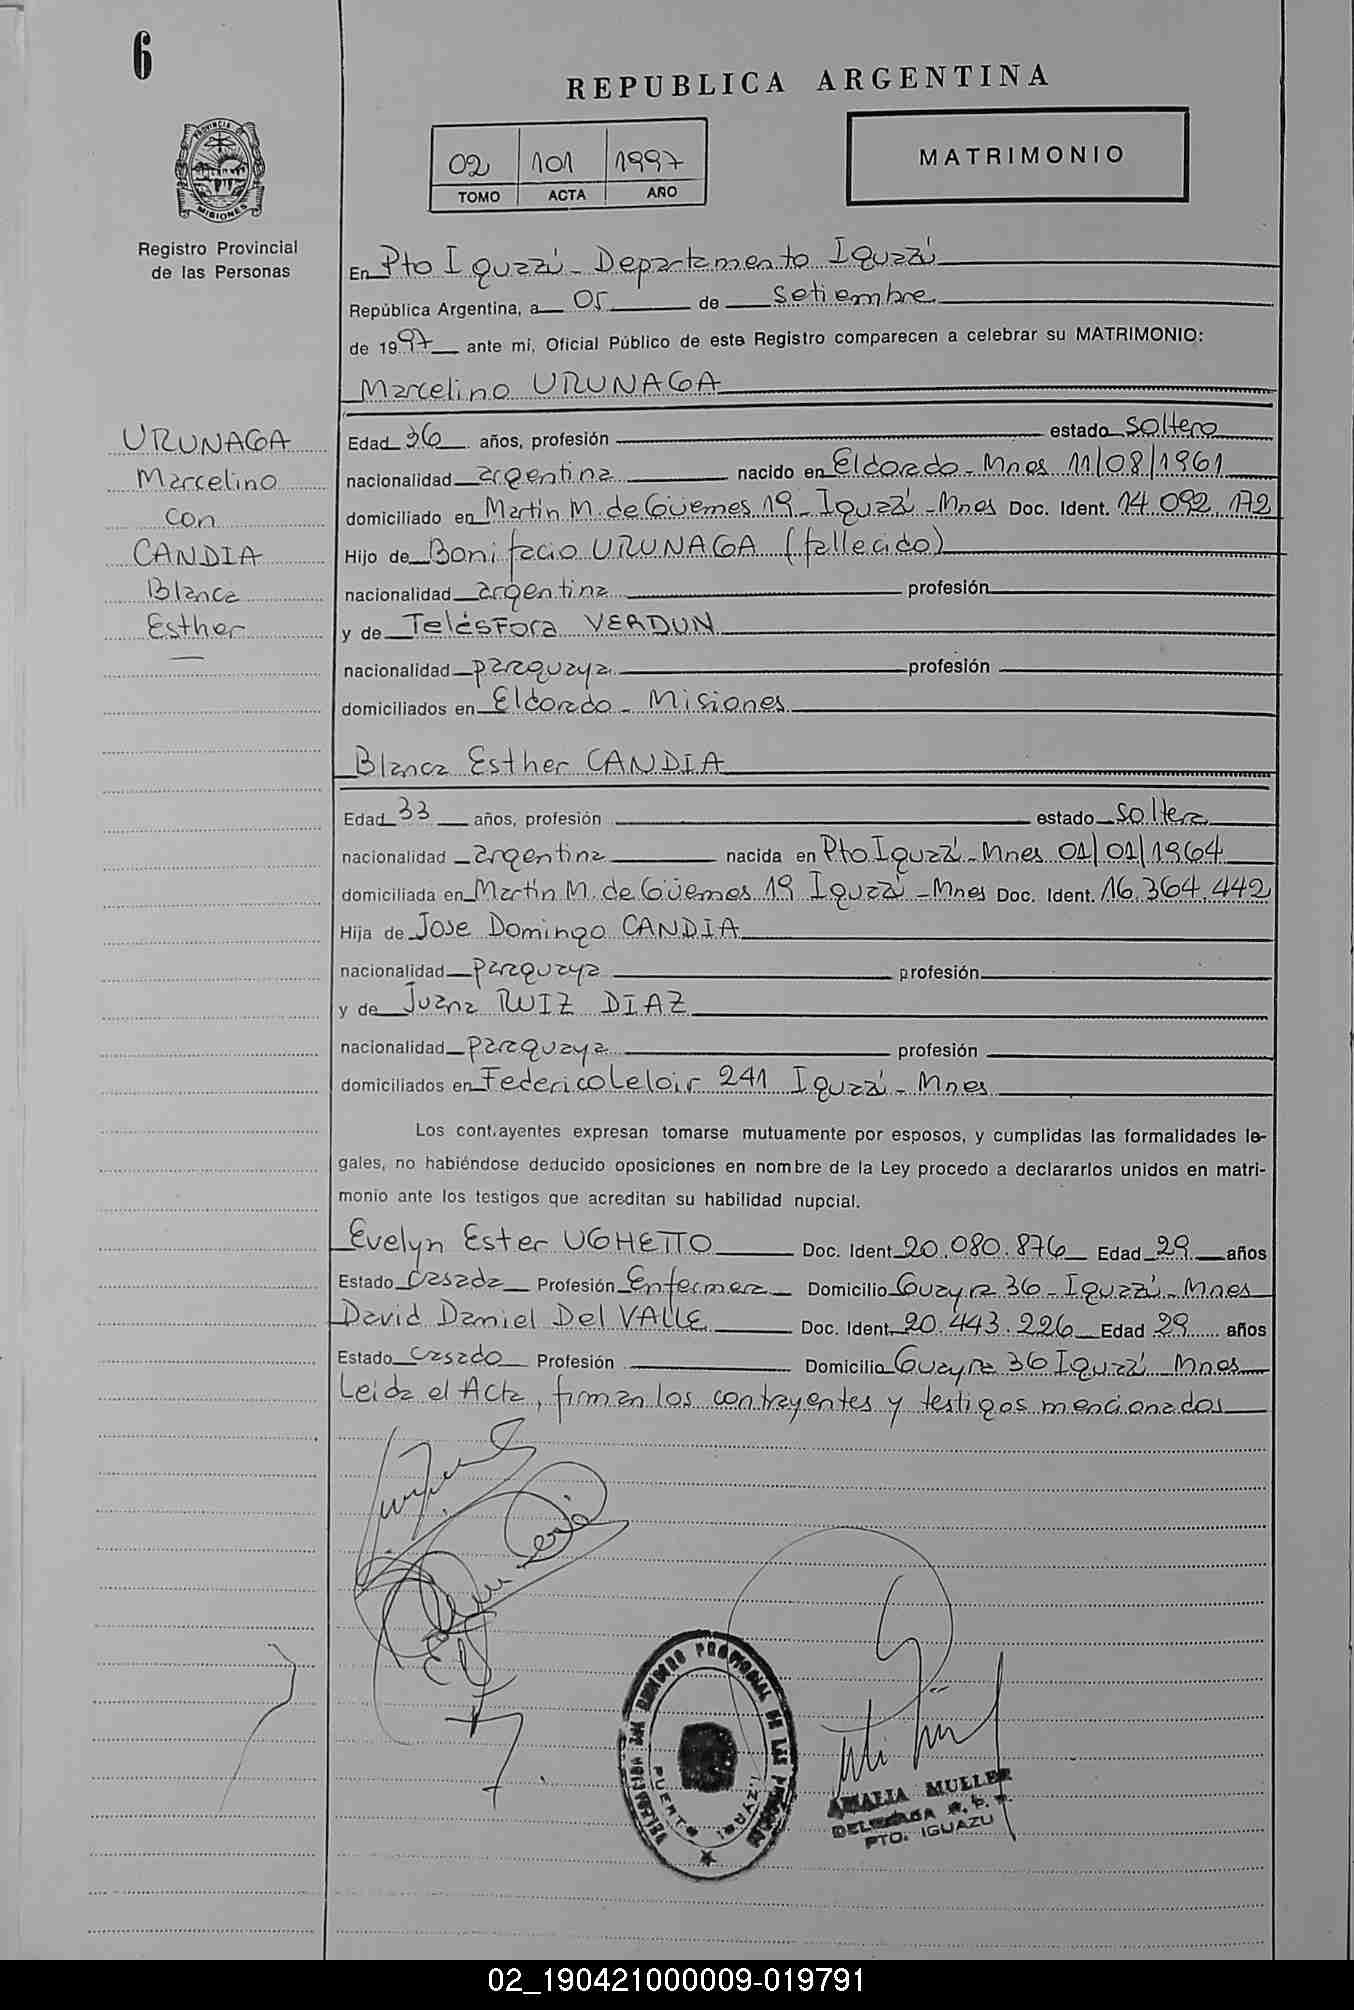 6
REPUBLICA ARGENTINA
02 101 1997
TOMO ACTA AÑO
MATRIMONIO
PROVINCIA DE
MISIONES
Registro Provincial
de las Personas
En Pto Iguazú - Departamento Iguazú
República Argentina, a 05 de Setiembre
de 1997 ante mi, Oficial Público de este Registro comparecen a celebrar su MATRIMONIO:
Marcelino URUNAGA
URUNAGA
Marcelino
con
CANDIA
Blanca
Esther
Edad 36 años, profesión estado soltero
nacionalidad argentina nacido en Eldorado - Mnes 11/08/1961
domiciliado en Martín M. de Güemes 19 - Iguazú - Mnes Doc. Ident. 14.092.172
Hijo de Bonifacio URUNAGA (fallecido)
nacionalidad argentina profesión
y de Telésfora VERDUN
nacionalidad paraguaya profesión
domiciliados en Eldorado - Misiones
Blanca Esther CANDIA
Edad 33 años, profesión estado soltera
nacionalidad argentina nacida en Pto Iguazú - Mnes 01/01/1964
domiciliada en Martín M. de Güemes 19 Iguazú - Mnes Doc. Ident. 16.364.442
Hija de Jose Domingo CANDIA
nacionalidad paraguaya profesión
y de Juana RUIZ DIAZ
nacionalidad paraguaya profesión
domiciliados en Federico Leloir 241 Iguazú - Mnes
Los cont.ayentes expresan tomarse mutuamente por esposos, y cumplidas las formalidades le-
gales, no habiéndose deducido oposiciones en nombre de la Ley procedo a declararlos unidos en matri-
monio ante los testigos que acreditan su habilidad nupcial.
Evelyn Ester UGHETTO Doc. Ident 20.080.876 Edad 29 años
Estado casada Profesión Enfermera Domicilio Guayra 36 - Iguazú - Mnes
David Daniel Del VALLE Doc. Ident. 20.443.226 Edad 29 años
Estado casado Profesión Domicilio Guayra 36 Iguazú - Mnes
Leida el Acta, firman los contrayentes y testigos mencionados
REGISTRO PROVINCIAL DE LAS PERSONAS
PUERTO
AMALIA MULLER
DELEGADA R. P. P.
PTO. IGUAZU
02_190421000009-019791